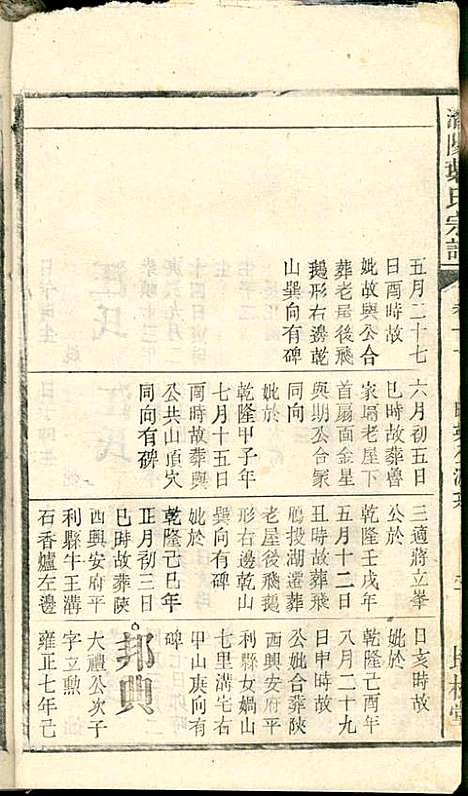 氏宗譜
五月二十七
日酉時故
妣故與公合
葬老屋後飛
鵝形右邊乾
山巽向有碑
六月初五日
巳時故葬魯
家塌老屋下
首扇面金星
與期公合冢
同向
妣於
乾隆甲子年
七月十五日
時故葬與
公共山頂穴
同向有碑
三適蔣立峯
公於
乾隆壬戌年
五月十二日
丑時故葬飛
鵬投湖遷葬
老屋後飛鵝
形右邊乾山
巽向有碑
妣於
乾隆己巳年
正月初三日
巳時故葬陝
西興安府平
利縣牛王溝
石香爐左邊
日亥時故
妣於
乾隆己酉年
八月二十九
日申時故
公妣合葬陝
西興安府平
利縣女媧山
七里溝宅右
甲山庚向有
碑
邦興
大禮公次子
字立勲
雍正七年己